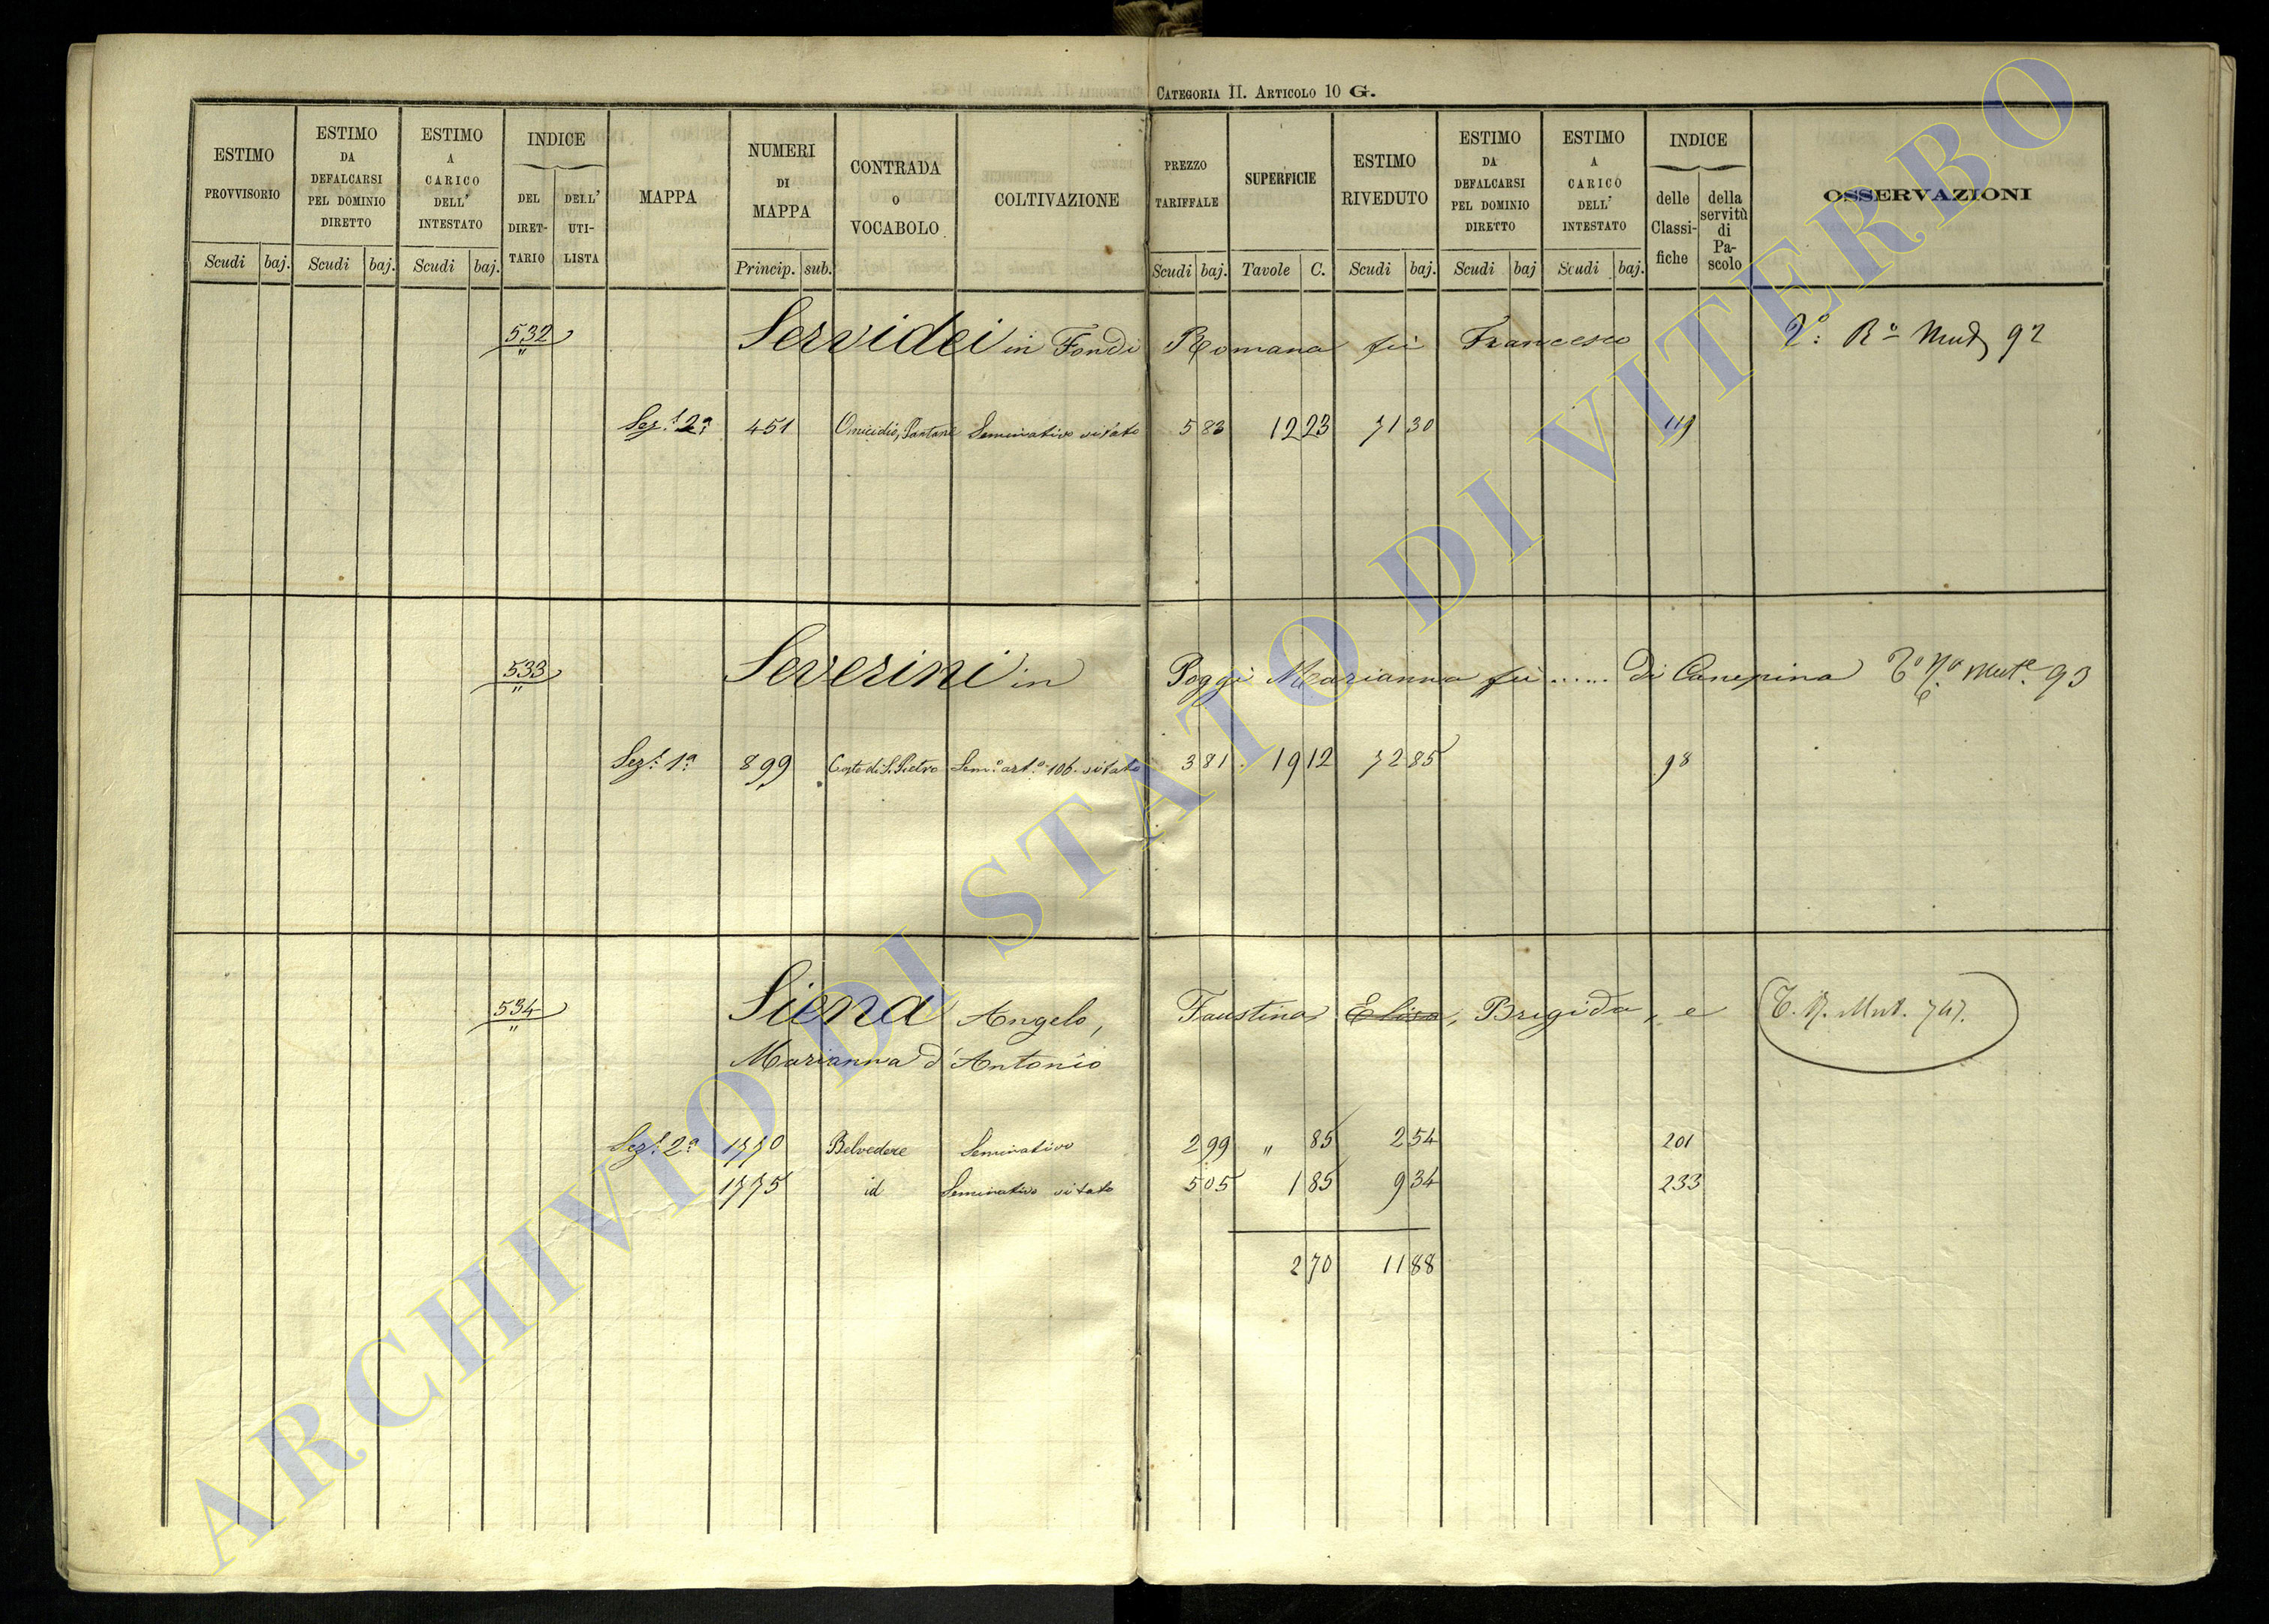 CATEGORIA II. ARTICOLO 10 G.
ESTIMO PROVVISORIO
ESTIMO DA DEFALCARSI PEL DOMINIO DIRETTO
ESTIMO A CARICO DELL' INTESTATO
INDICE
DEL DIRETTARIO
DELL' UTILISTA
MAPPA
NUMERI DI MAPPA
CONTRADA O VOCABOLO
COLTIVAZIONE
PREZZO TARIFFALE
SUPERFICIE
ESTIMO RIVEDUTO
ESTIMO DA DEFALCARSI PEL DOMINIO DIRETTO
ESTIMO A CARICO DELL' INTESTATO
INDICE
delle Classifiche
della servitù di Pascolo
OSSERVAZIONI
Scudi baj. Scudi baj. Scudi baj. Princip. sub. Scudi baj. Tavole C. Scudi baj. Scudi baj Scudi baj.
532 Servidei in Fondi Romana fù Francesco 92
Sez.e 2a 451 Omicidio, Pantane Seminativo vitato 5 83 12 23 71 30 119
533 Severini in Poggi Marianna fù ...... di Canepina 93
Sez.e 1a 899 Coste di S. Pietro Sem.o art.o 106. vitato 3 81 19 12 72 85 98
534 Siena Angelo, Faustina, Elisa, Brigida, e T. N. Mut. 747.
Marianna d'Antonio
Sez.e 2a 1770 Belvedere Seminativo 2 99 " 85 2 54 201
1775 id Seminativo vitato 5 05 1 85 9 34 233
2 70 11 88
ARCHIVIO DI STATO DI VITERBO